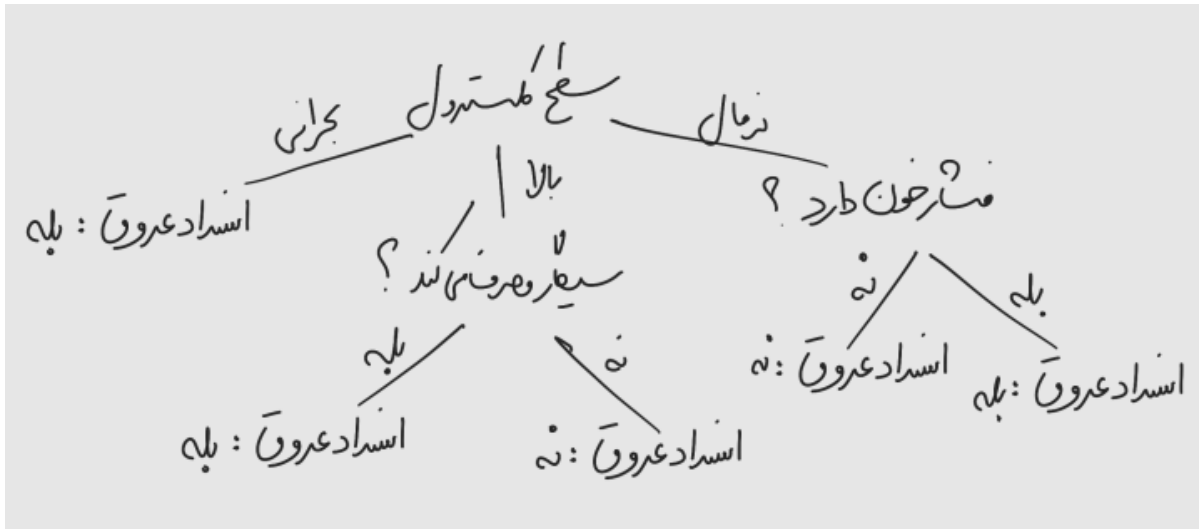 سطح کلسترول
بحرانی
بالا
نرمال
انسداد عروق : بله
سیگار مصرف می کند ؟
فشار خون دارد ؟
بله
نه
نه
بله
انسداد عروق : بله
انسداد عروق : نه
انسداد عروق : نه
انسداد عروق : بله